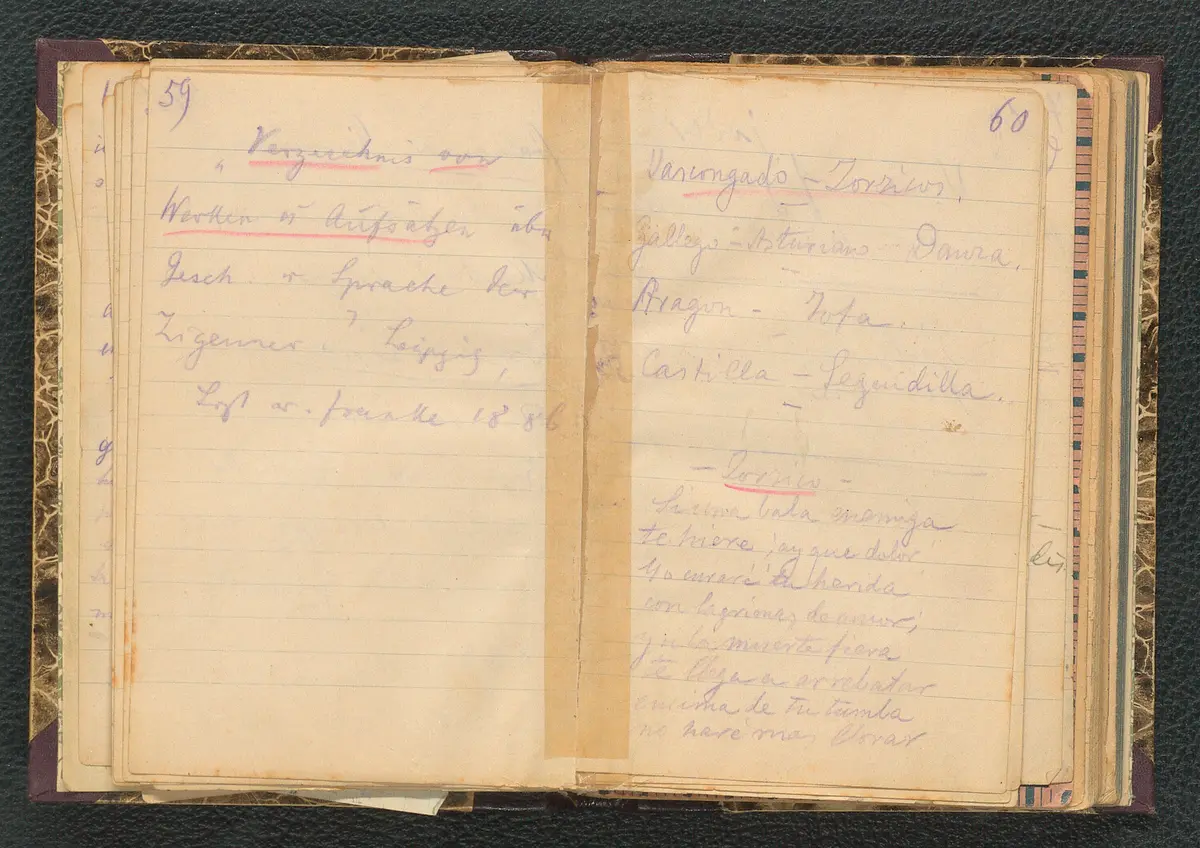 59
„ Verzeichnis von
Werken u Aufsätzen über
Gesch. u. Sprache der
Zigeuner. " Leipzig,
List u. Franke 1886
60
Vascongado - Zorzicos.
Gallego - Asturiano - Danza.
Aragon - Jota.
Castilla - Seguidilla.
- Zorzico -
Si una bala enemiga
te hiere ¡ay que dolor
Yo curaré tu herida
con lagrimas de amor;
y si la muerte fiera
te llega a arrebatar
encima de tu tumba
no haré mas llorar